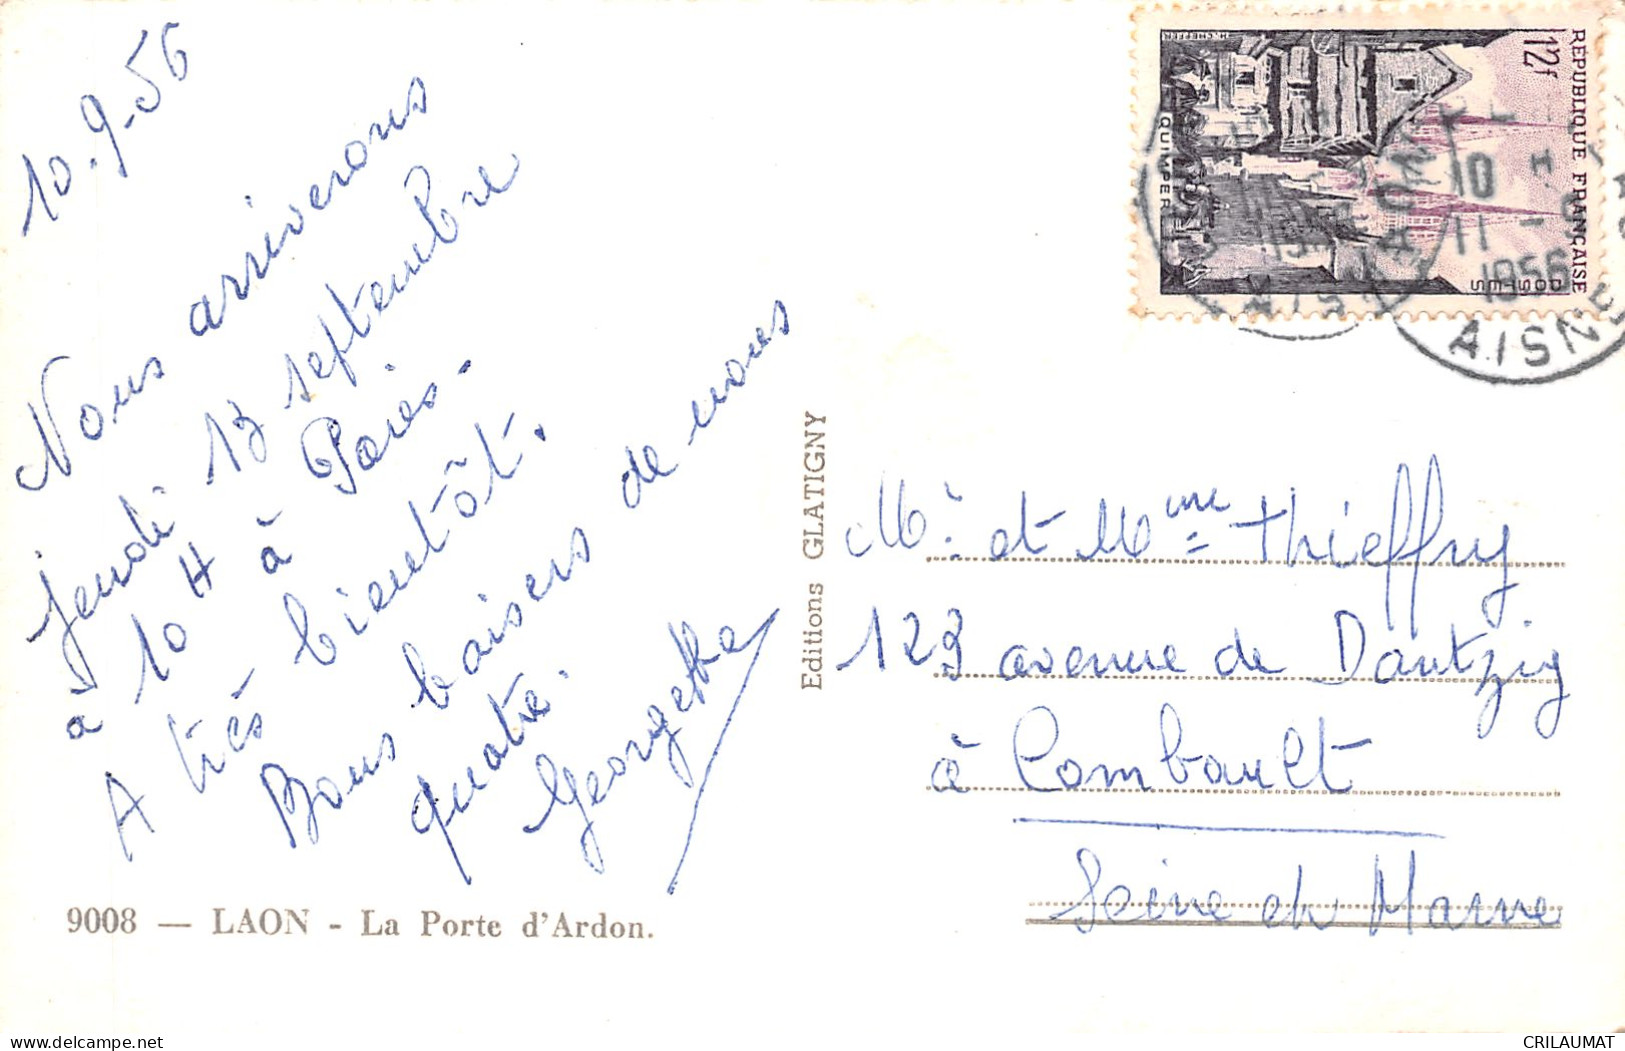 10.9-56
Nous arriverons
jeudi 13 septembre
à 10 H à Paris-
A très bientôt.
Bons baisers de nous
quatre.
Georgette
9008 — LAON - La Porte d'Ardon.
Editions GLATIGNY
RÉPUBLIQUE FRANÇAISE
12f
POSTES
QUIMPER
LAON
10 H
11 - 9
1956
AISNE
Mr et Mme Thieffry
123 avenue de Dantzig
à Combault
Seine et Marne
delcampe.net
CRILAUMAT